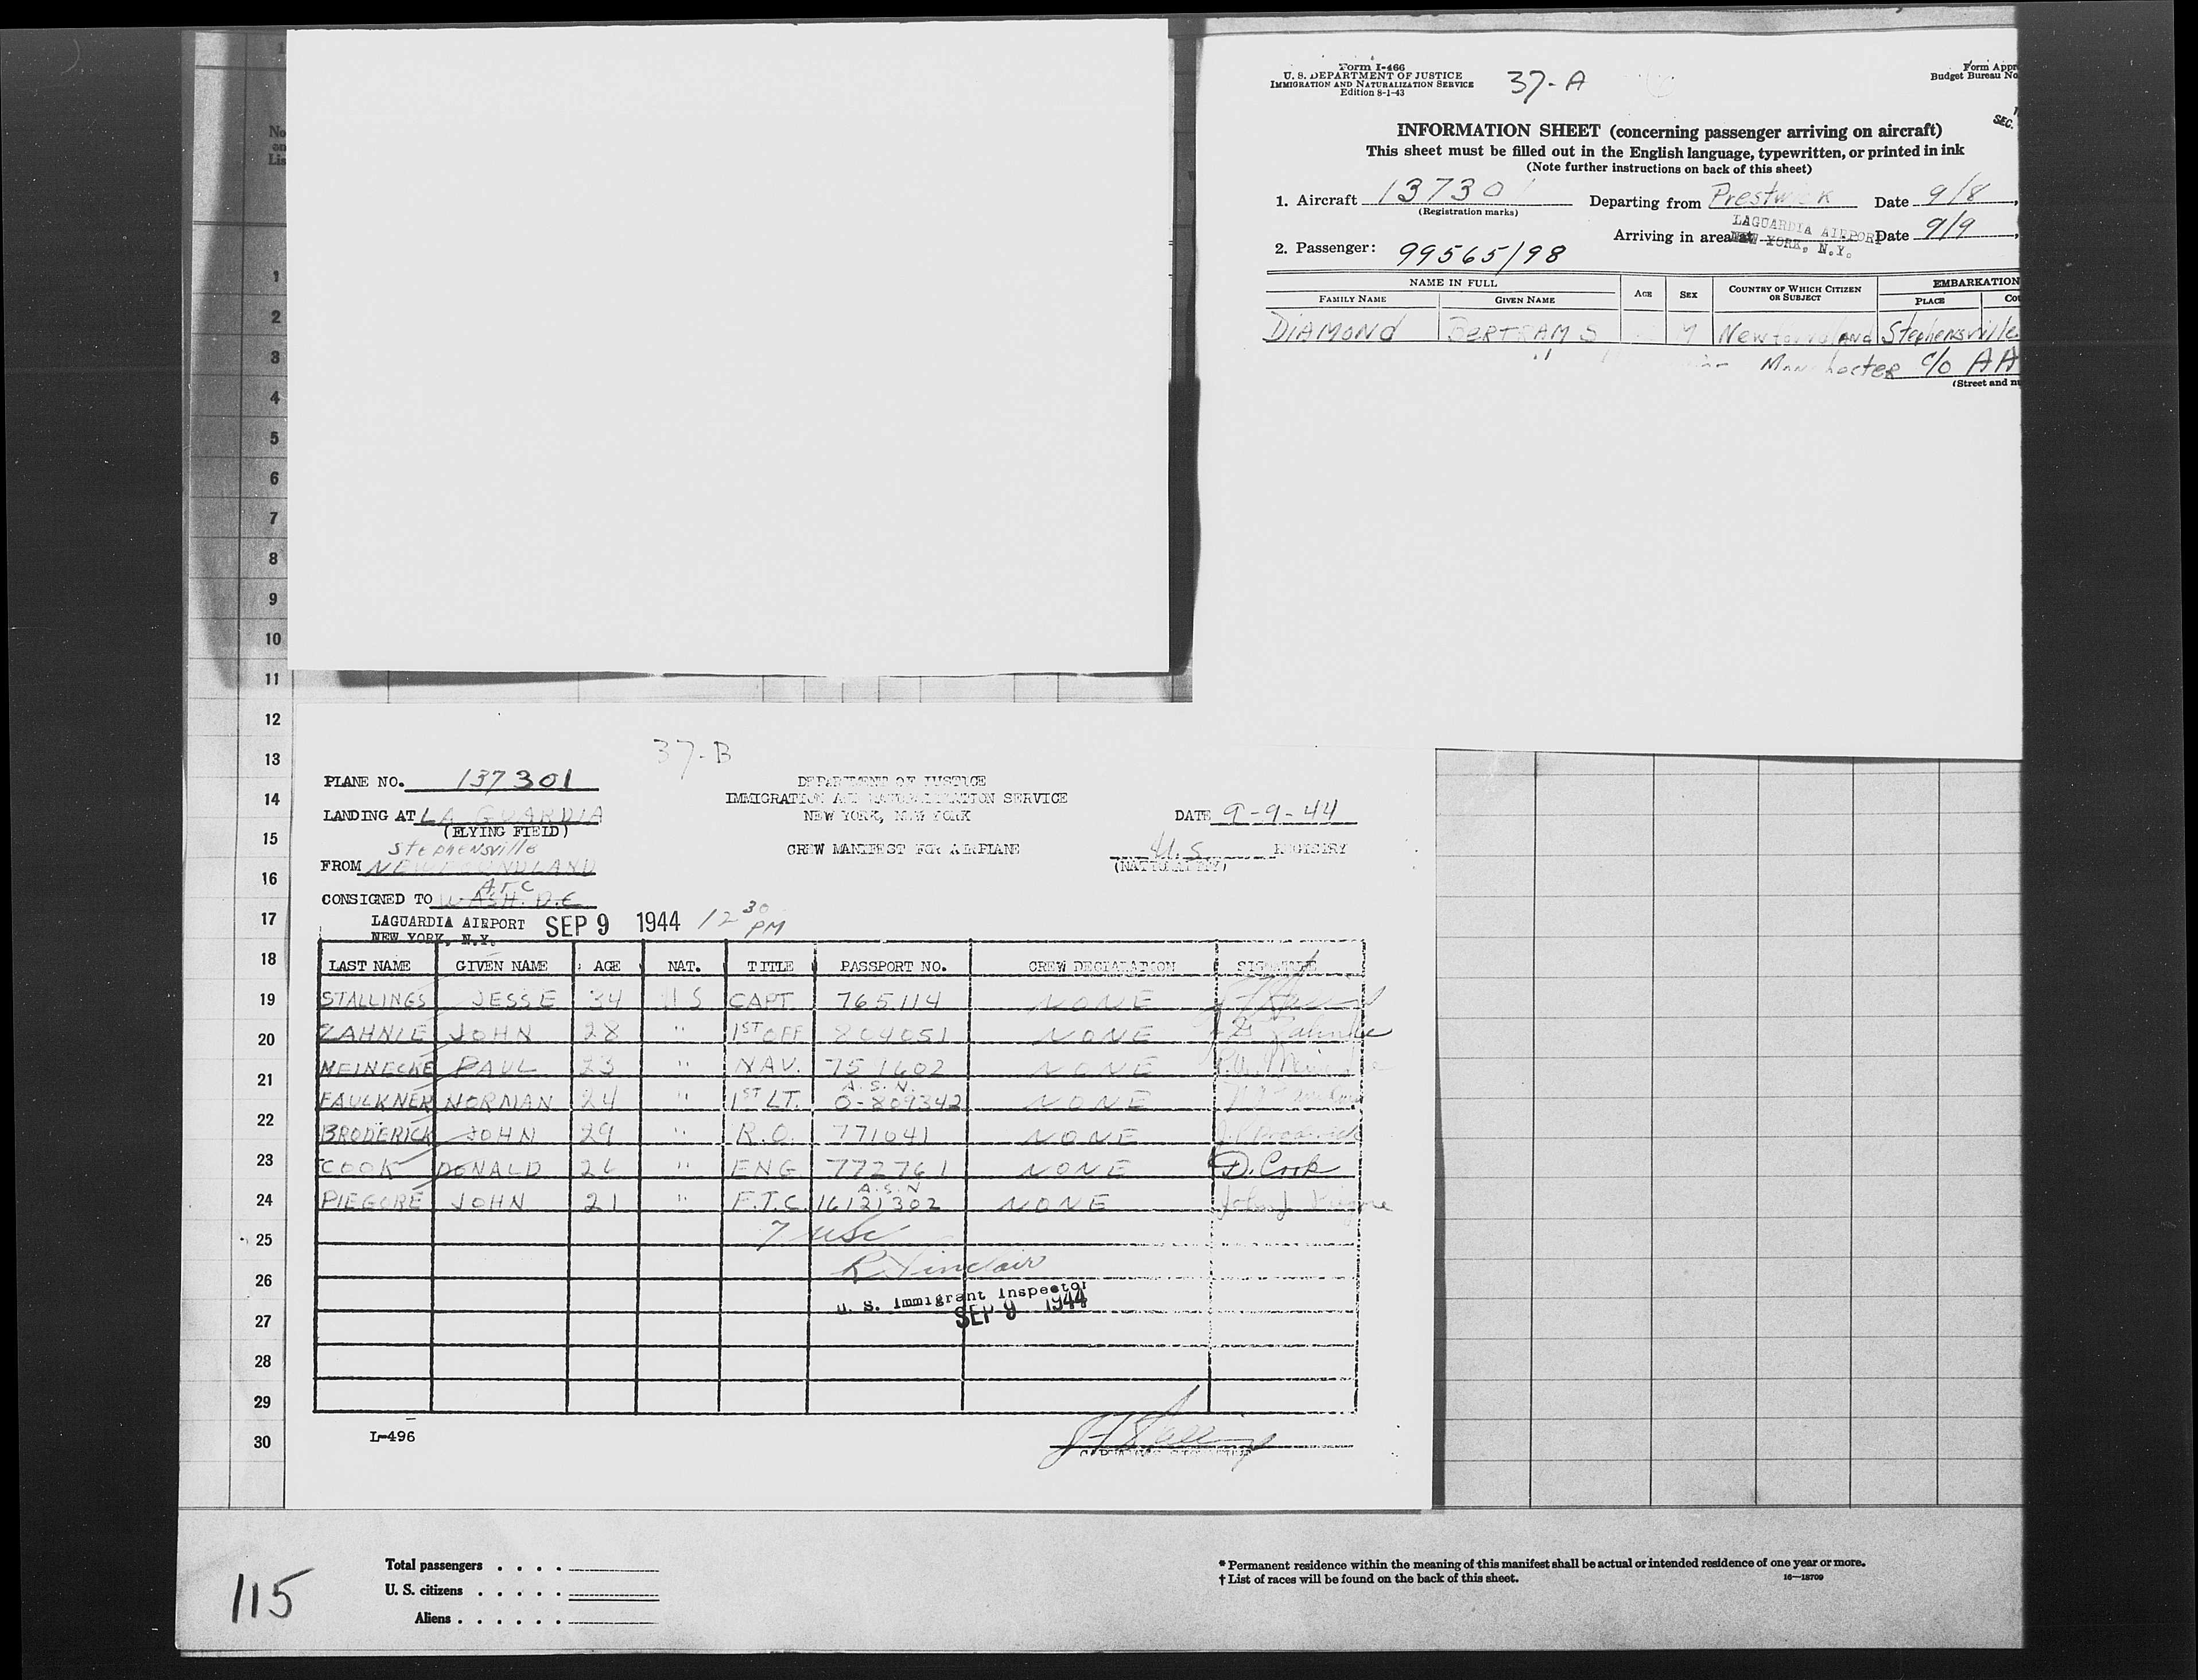 No
on
Lis
1
2
3
4
5
6
7
8
9
10
11
12
13
14
15
16
17
18
19
20
21
22
23
24
25
26
27
28
29
30
Form I-466
U. S. DEPARTMENT OF JUSTICE
IMMIGRATION AND NATURALIZATION SERVICE
Edition 8-1-43
37-A
Form Appr
Budget Bureau No
SEC.
INFORMATION SHEET (concerning passenger arriving on aircraft)
This sheet must be filled out in the English language, typewritten, or printed in ink
(Note further instructions on back of this sheet)
1. Aircraft 137301 Departing from Prestwick Date 9/8,
(Registration marks)
Arriving in area at LAGUARDIA AIRPORT NEW YORK, N.Y. Date 9/9,
2. Passenger: 99565/98
NAME IN FULL AGE SEX COUNTRY OF WHICH CITIZEN OR SUBJECT EMBARKATION
FAMILY NAME GIVEN NAME PLACE Cou
DIAMOND BERTRAM S M Newfoundland Stephensville
Manchester c/o AA
(Street and nu
37-B
PLANE NO. 137301
DEPARTMENT OF JUSTICE
IMMIGRATION AND NATURALIZATION SERVICE
NEW YORK, NEW YORK
LANDING AT LA GUARDIA
(FLYING FIELD)
DATE 9-9-44
Stephensville
FROM NEWFOUNDLAND
CREW MANIFEST FOR AIRPLANE
U.S. REGISTRY
(NATIONALITY)
A.T.C
CONSIGNED TO WASH. D.C
LAGUARDIA AIRPORT SEP 9 1944 12 30 PM
NEW YORK, N.Y.
LAST NAME GIVEN NAME AGE NAT. TITLE PASSPORT NO. CREW DECLARATION SIGNATURE
STALLINGS JESSE 34 U S CAPT. 765114 NONE
ZAHNLE JOHN 28 " 1ST OFF 804051 NONE
MEINECKE PAUL 23 " NAV. 751602 NONE
A.S.N.
FAULKNER NORMAN 24 " 1ST LT. O-809342 NONE
BRODERICK JOHN 29 " R.O. 771041 NONE
COOK DONALD 26 " ENG 772761 NONE D. Cook
A.S.N
PIEGORE JOHN 21 " F.T.C. 16121302 NONE John J Piegore
7 usc
R. Sinclair
U. S. Immigrant Inspector
SEP 9 1944
L-496
J F Stallings
CAPTAIN'S SIGNATURE
Total passengers . . . .
U. S. citizens . . . . .
Aliens . . . . . .
* Permanent residence within the meaning of this manifest shall be actual or intended residence of one year or more.
† List of races will be found on the back of this sheet.
16—18709
115